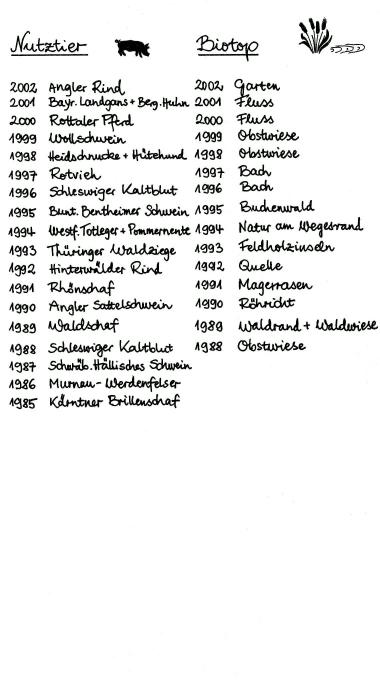 Nutztier
2002 Angler Rind
2001 Bayr. Landgans + Berg. Huhn
2000 Rottaler Pferd
1999 Wollschwein
1998 Heidschnucke + Hütehund
1997 Rotvieh
1996 Schleswiger Kaltblut
1995 Bunt. Bentheimer Schwein
1994 Westf. Totleger + Pommernente
1993 Thüringer Waldziege
1992 Hinterwälder Rind
1991 Rhönschaf
1990 Angler Sattelschwein
1989 Waldschaf
1988 Schleswiger Kaltblut
1987 Schwäb. Hällisches Schwein
1986 Murnau-Werdenfelser
1985 Kärntner Brillenschaf
Biotop
2002 Garten
2001 Fluss
2000 Fluss
1999 Obstwiese
1998 Obstwiese
1997 Bach
1996 Bach
1995 Buchenwald
1994 Natur am Wegesrand
1993 Feldholzinseln
1992 Quelle
1991 Magerrasen
1990 Röhricht
1989 Waldrand + Waldwiese
1988 Obstwiese